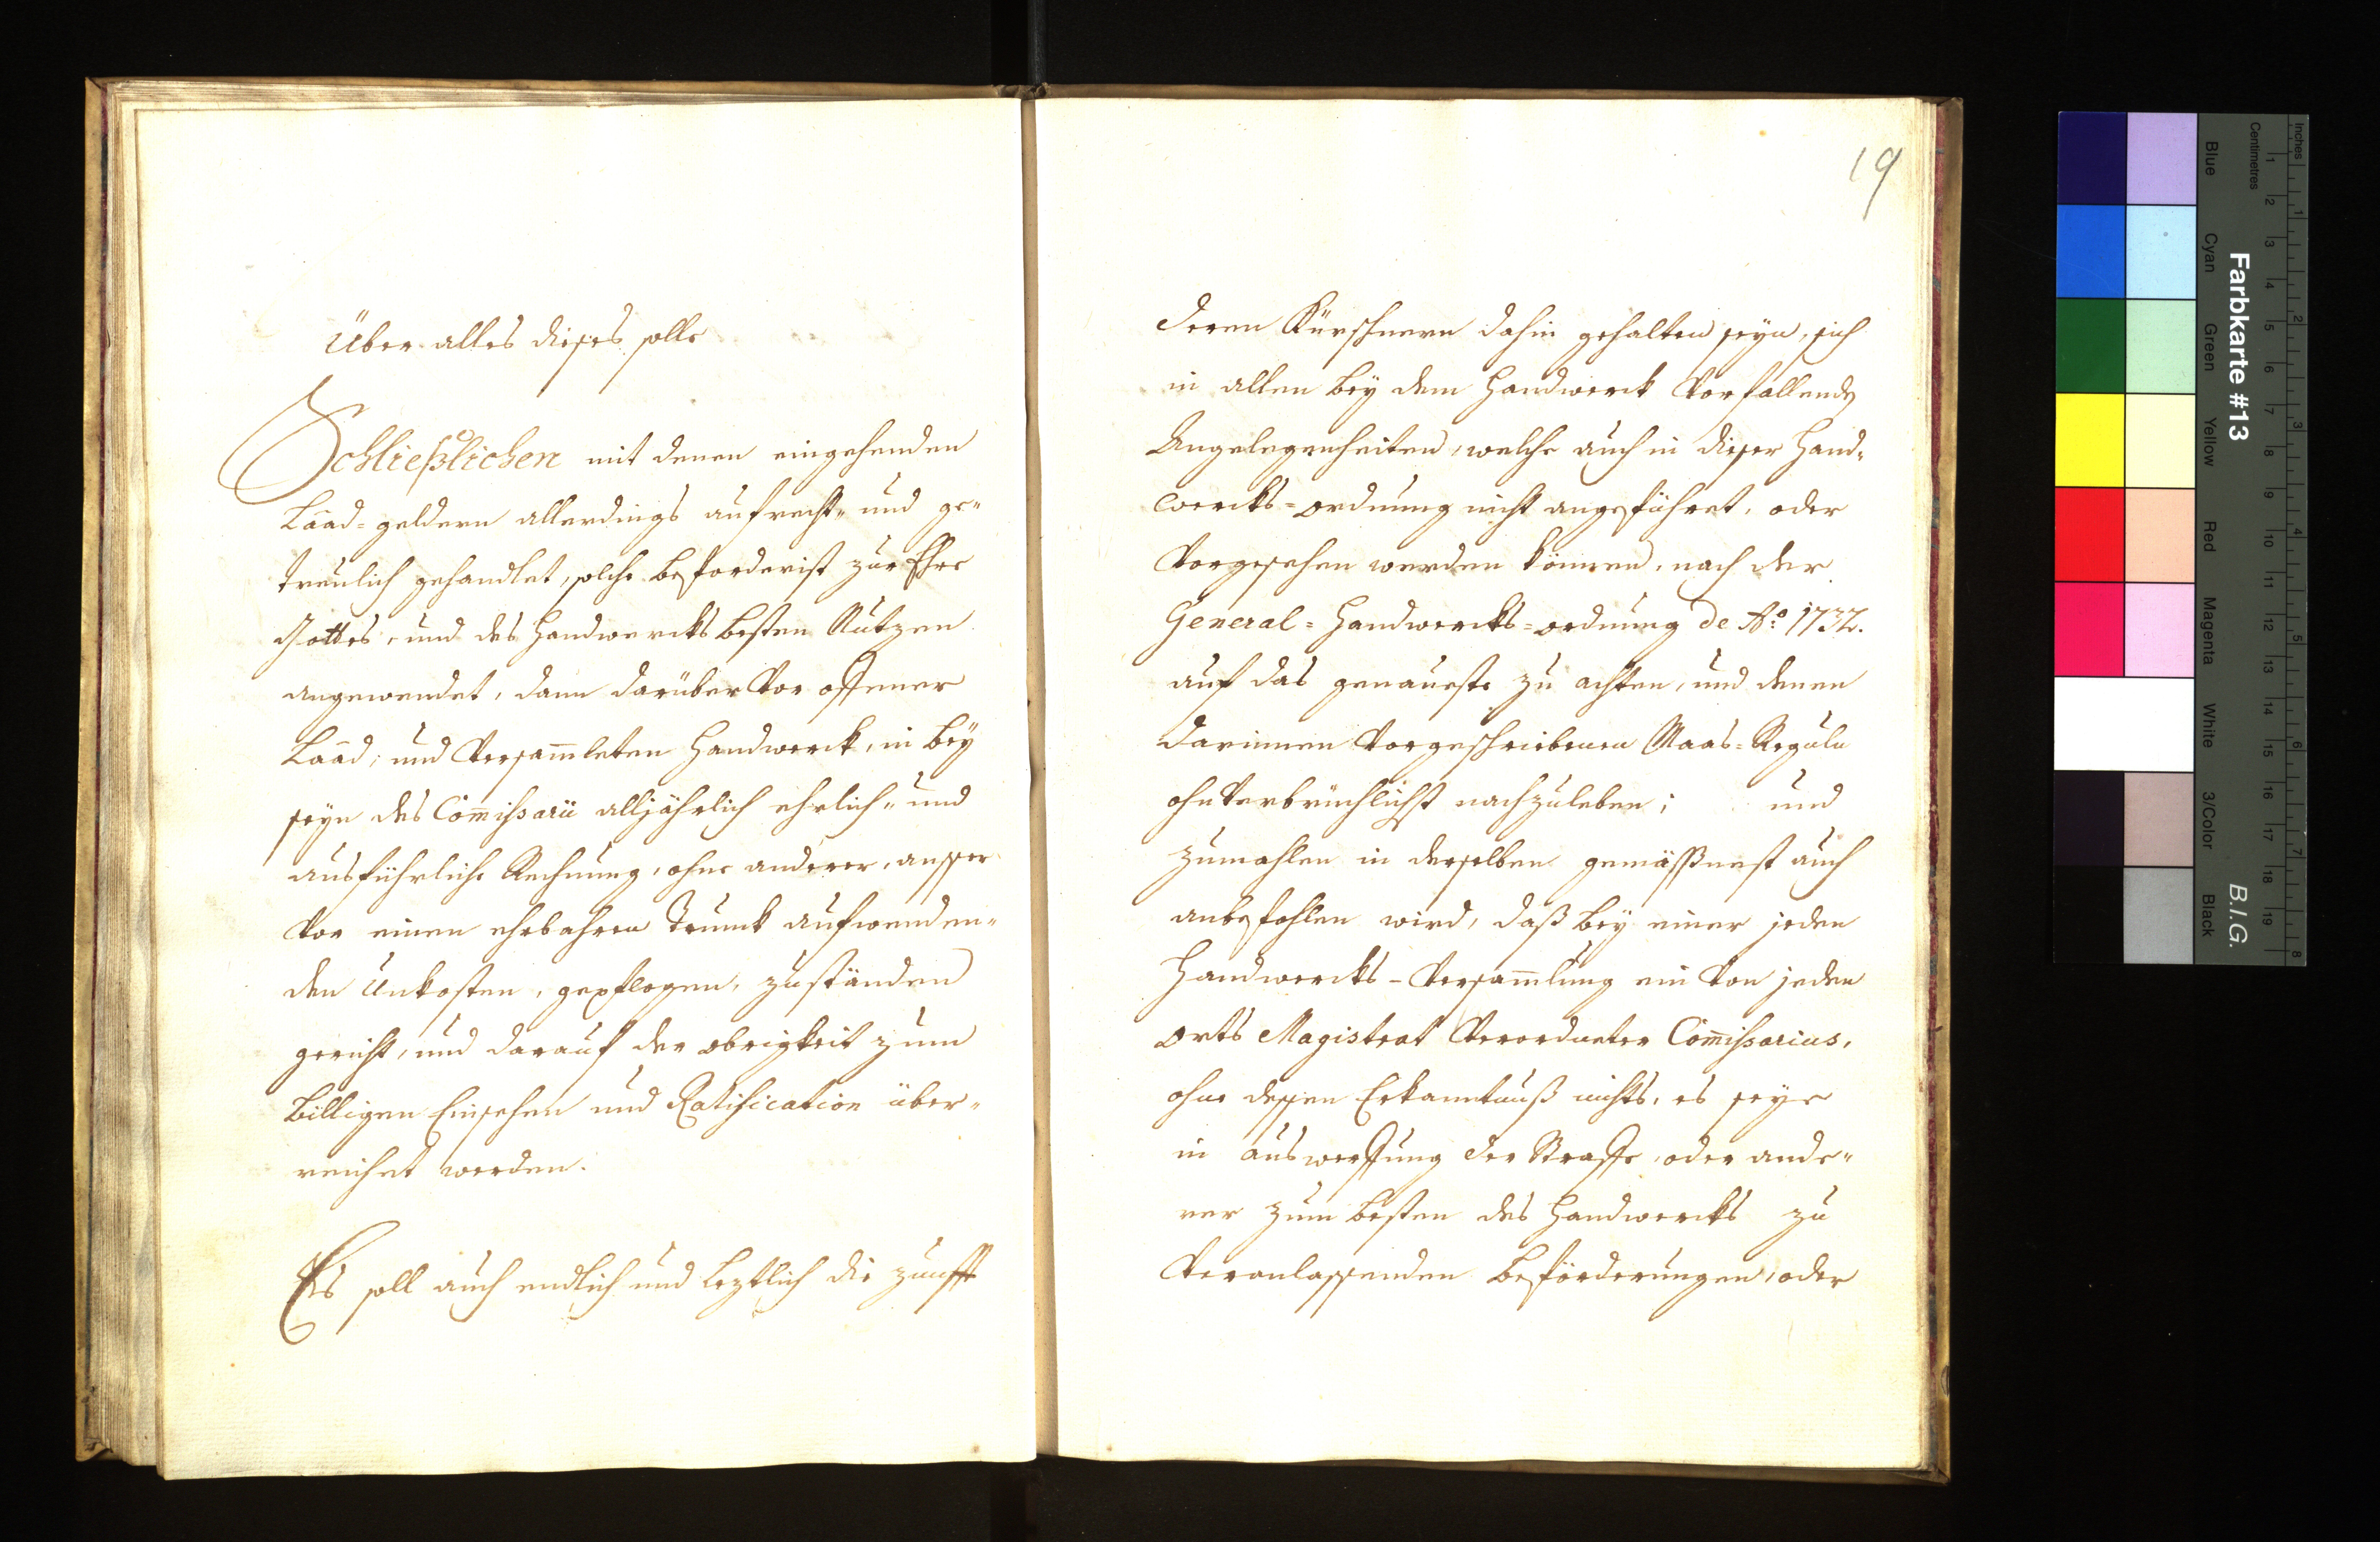 Über alles dieses solle
Schließlichen mit denen eingehenden
Laad=geldern allerdings aufrecht- und ge-
treulich gehandlet, solche beforderist zur Ehre
Gottes, und des Handwercks besten Nutzen
angewendet, dann darüber vor offener
Laad, und versam̄leten Handwerck, in bey
seyn des Com̄ißarii alljährlich ehrlich- und
ausführliche Rechnung, ohne anderer, ausser
vor einen ehrbahren Trunck aufwenden-
den Unkosten, gepflogen, zuständen
gericht, und darauf der obrigkeit zum
billigen Einsehen und Ratification über-
reichet werden.
Es soll auch endlich und leztlich die zunfft
19
deren Kürschnern dahin gehalten seyn, sich
in allen bey dem Handwerck vorfallenden
Angelegenheiten, welche auch in dieser Hand-
wercks=ordnung nicht angeführet, oder
vorgesehen werden können, nach der
General=Handwercks=ordnung de Ao. 1732.
auf das genaueste zu achten, und denen
darinnen vorgeschriebenen Maas=Reguln
ohnverbrüchlichst nachzuleben; und
zumahlen in derselben gemässenest auch
anbefohlen wird, daß bey einer jeden
Handwercks-versam̄lung ein von jeden
orts Magistrat verordneter Com̄ißarius,
ohne dessen Erkanntnuß nichts, es seye
in auswerffung der Straffe, oder ande-
rer zum besten des Handwercks zu
veranlassenden beförderungen, oder
Farbkarte #13
B.I.G.
Inches
Centimetres
1 2 3 4 5 6 7 8 9 10 11 12 13 14 15 16 17 18 19
1 2 3 4 5 6 7 8
Blue Cyan Green Yellow Red Magenta White 3/Color Black